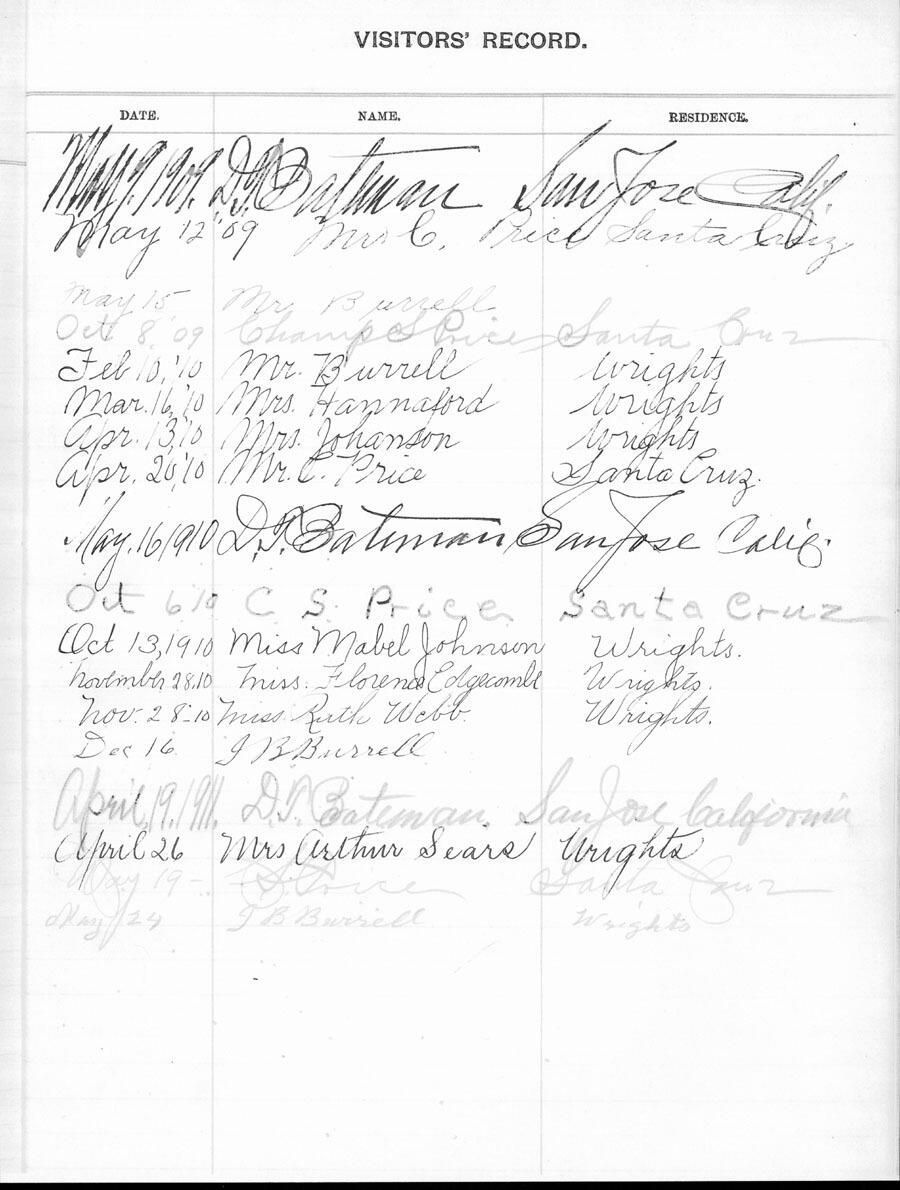 VISITORS' RECORD.
DATE. NAME. RESIDENCE.
May 9, 1909. D.T. Bateman San Jose Calif.
May 12 '09 Mrs C. Price Santa Cruz
May 15 Mr. Burrell
Oct 8, '09 Champ S Price Santa Cruz
Feb 10, '10 Mr. Burrell Wrights
Mar. 16, '10 Mrs. Hannaford Wrights
Apr. 13, '10 Mrs. Johanson Wrights
Apr. 20, '10 Mr. C. Price Santa Cruz.
May. 16 1910 D.T. Bateman San Jose Calif.
Oct 6 10 C. S. Price Santa Cruz
Oct 13, 1910 Miss Mabel Johnson Wrights.
November 28.10 Miss. Florence Edgecombe Wrights.
Nov. 28-10 Miss Ruth Webb. Wrights.
Dec 16. J B Burrell
April, 19. 1911. D.T. Bateman. San Jose California
April 26 Mrs Arthur Sears Wrights
May 19 - S Price Santa Cruz
May 24 J B Burrell Wrights